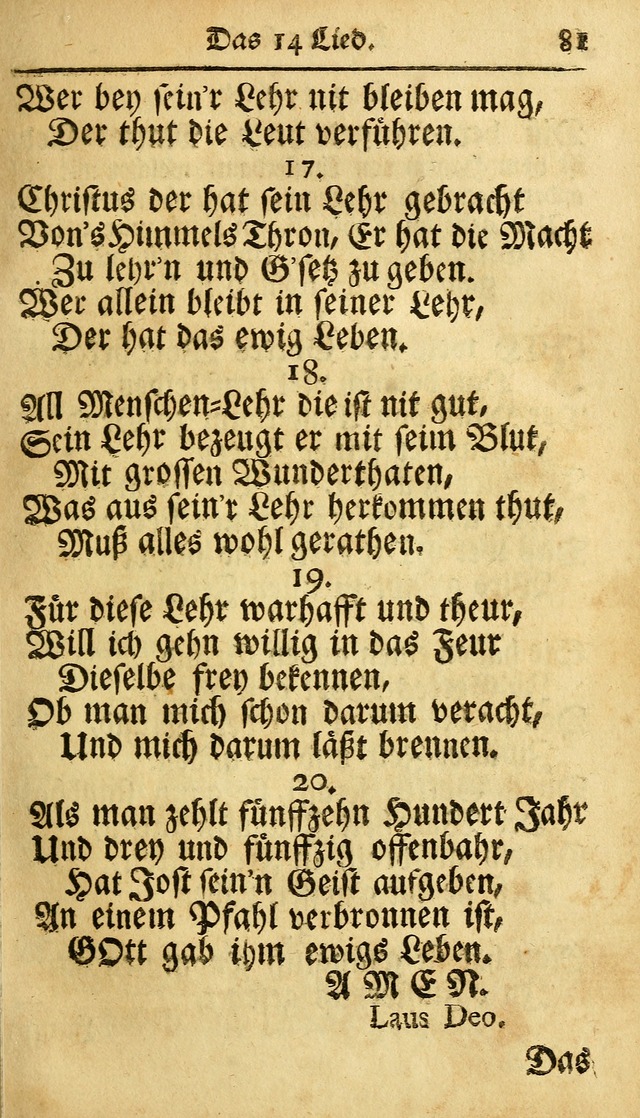 Das 14 Lied. 81
Wer bey sein'r Lehr nit bleiben mag,
Der thut die Leut verführen.
17.
Christus der hat sein Lehr gebracht
Von's Himmels Thron, Er hat die Macht
Zu lehr'n und G'setz zu geben.
Wer allein bleibt in seiner Lehr,
Der hat das ewig Leben.
18.
All Menschen-Lehr die ist nit gut,
Sein Lehr bezeugt er mit seim Blut,
Mit grossen Wunderthaten,
Was aus sein'r Lehr herkommen thut,
Muß alles wohl gerathen.
19.
Für diese Lehr warhafft und theur,
Will ich gehn willig in das Feur
Dieselbe frey bekennen,
Ob man mich schon darum veracht,
Und mich darum läßt brennen.
20.
Als man zehlt fünffzehn Hundert Jahr
Und drey und fünffzig offenbahr,
Hat Jost sein'n Geist aufgeben,
An einem Pfahl verbronnen ist,
GOtt gab ihm ewigs Leben.
AMEN.
Laus Deo.
Das